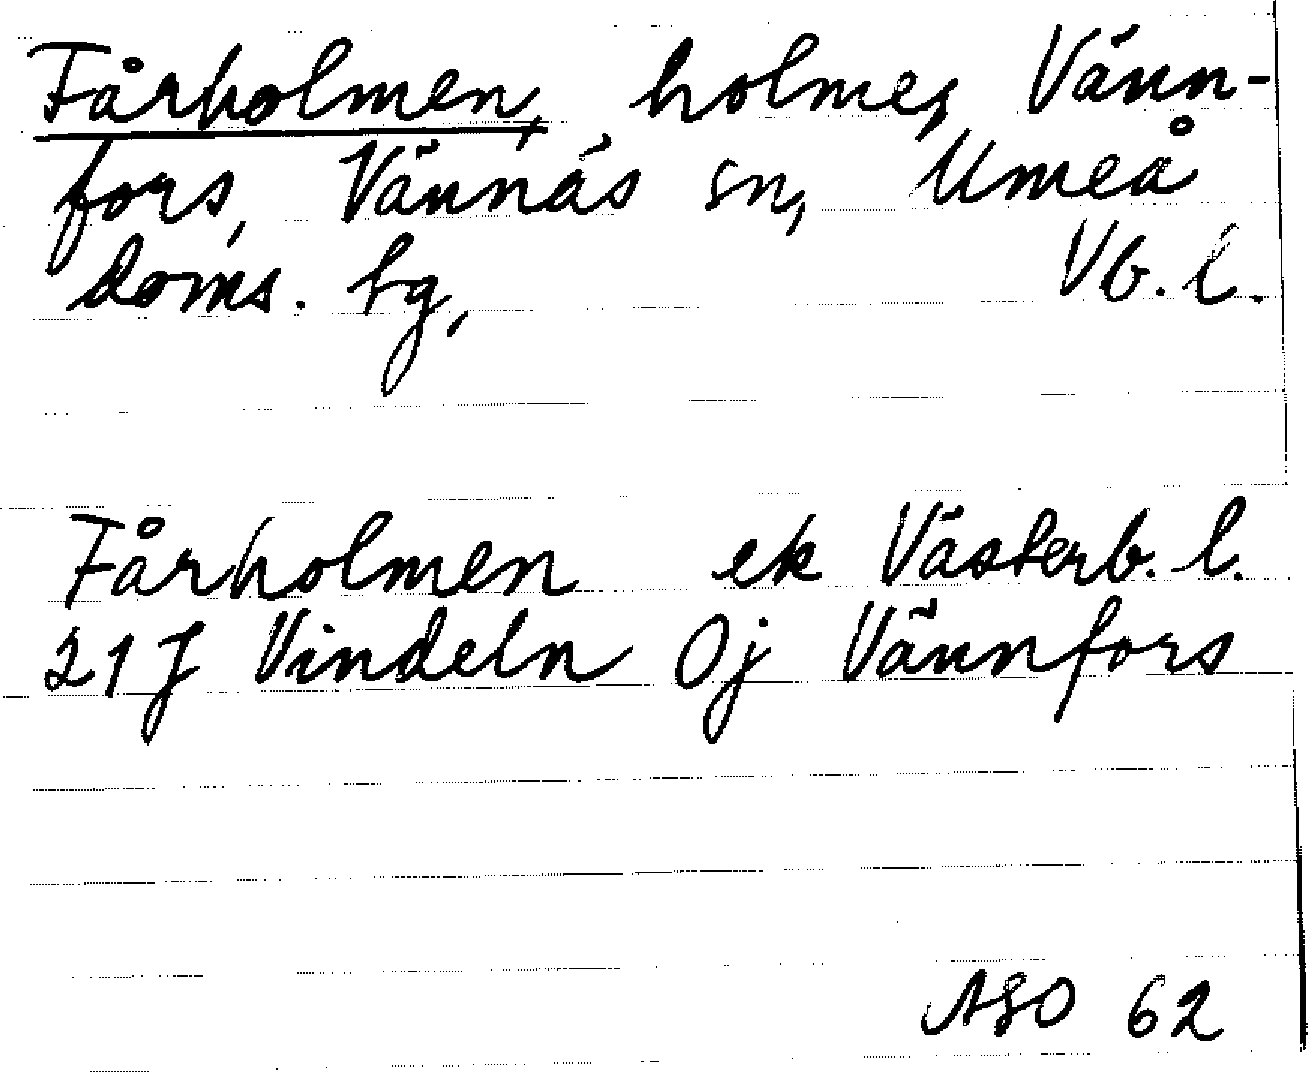 Fårholmen, holme, Vänn-
fors, Vännäs sn, Umeå
doms. tg, Vb. l.
Fårholmen ek Västerb. l.
21J Vindeln 0j Vännfors
ASO 62